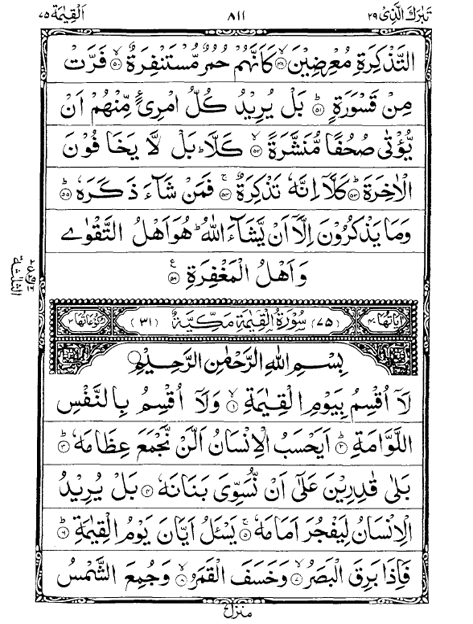 تَبٰرَكَ الَّذِىْ ٢٩
٨١١
اَلْقِيٰمَة ٧٥
التَّذْكِرَةِ مُعْرِضِيْنَ ۙ﴿٤٩﴾ كَاَنَّهُمْ حُمُرٌ مُّسْتَنْفِرَةٌ ۙ﴿٥٠﴾ فَرَّتْ
مِنْ قَسْوَرَةٍ ؕ﴿٥١﴾ بَلْ يُرِيْدُ كُلُّ امْرِىٴٍ مِّنْهُمْ اَنْ
يُّؤْتٰى صُحُفًا مُّنَشَّرَةً ۙ﴿٥٢﴾ كَلَّا ؕ بَلْ لَّا يَخَافُوْنَ
الْاٰخِرَةَ ؕ﴿٥٣﴾ كَلَّاۤ اِنَّهٗ تَذْكِرَةٌ ۚ﴿٥٤﴾ فَمَنْ شَآءَ ذَكَرَهٗ ؕ﴿٥٥﴾
وَمَا يَذْكُرُوْنَ اِلَّاۤ اَنْ يَّشَآءَ اللّٰهُ ؕ هُوَ اَهْلُ التَّقْوٰى
وَاَهْلُ الْمَغْفِرَةِ ﴿٥٦﴾
اٰيَاتُهَا ٤٠ (٧٥) سُوْرَةُ الْقِيٰمَةِ مَكِّيَّةٌ (٣١) رُكُوْعَاتُهَا ٢
بِسْمِ اللّٰهِ الرَّحْمٰنِ الرَّحِيْمِ
لَاۤ اُقْسِمُ بِيَوْمِ الْقِيٰمَةِ ۙ﴿١﴾ وَلَاۤ اُقْسِمُ بِالنَّفْسِ
اللَّوَّامَةِ ؕ﴿٢﴾ اَيَحْسَبُ الْاِنْسَانُ اَلَّنْ نَّجْمَعَ عِظَامَهٗ ؕ﴿٣﴾
بَلٰى قٰدِرِيْنَ عَلٰۤى اَنْ نُّسَوِّىَ بَنَانَهٗ ﴿٤﴾ بَلْ يُرِيْدُ
الْاِنْسَانُ لِيَفْجُرَ اَمَامَهٗ ۚ﴿٥﴾ يَسْـَٔلُ اَيَّانَ يَوْمُ الْقِيٰمَةِ ؕ﴿٦﴾
فَاِذَا بَرِقَ الْبَصَرُ ۙ﴿٧﴾ وَخَسَفَ الْقَمَرُ ۙ﴿٨﴾ وَجُمِعَ الشَّمْسُ
منزل